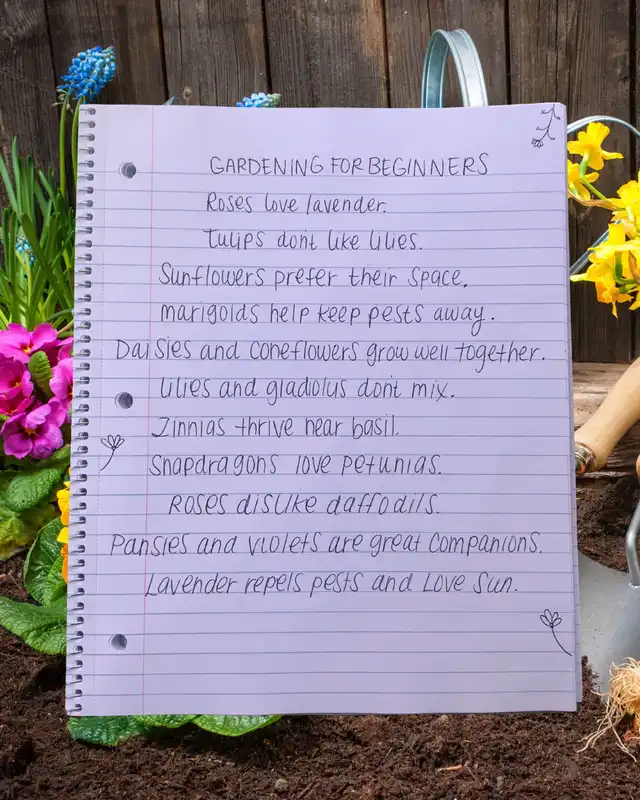 GARDENING FOR BEGINNERS
Roses love lavender.
Tulips don't like lilies.
Sunflowers prefer their space.
marigolds help keep pests away.
Daisies and coneflowers grow well together.
Lilies and gladolus don't mix.
Zinnias thrive near basil.
Snapdragons love petunias.
Roses dislike daffodils.
Pansies and violets are great companions.
Lavender repels pests and Love Sun.